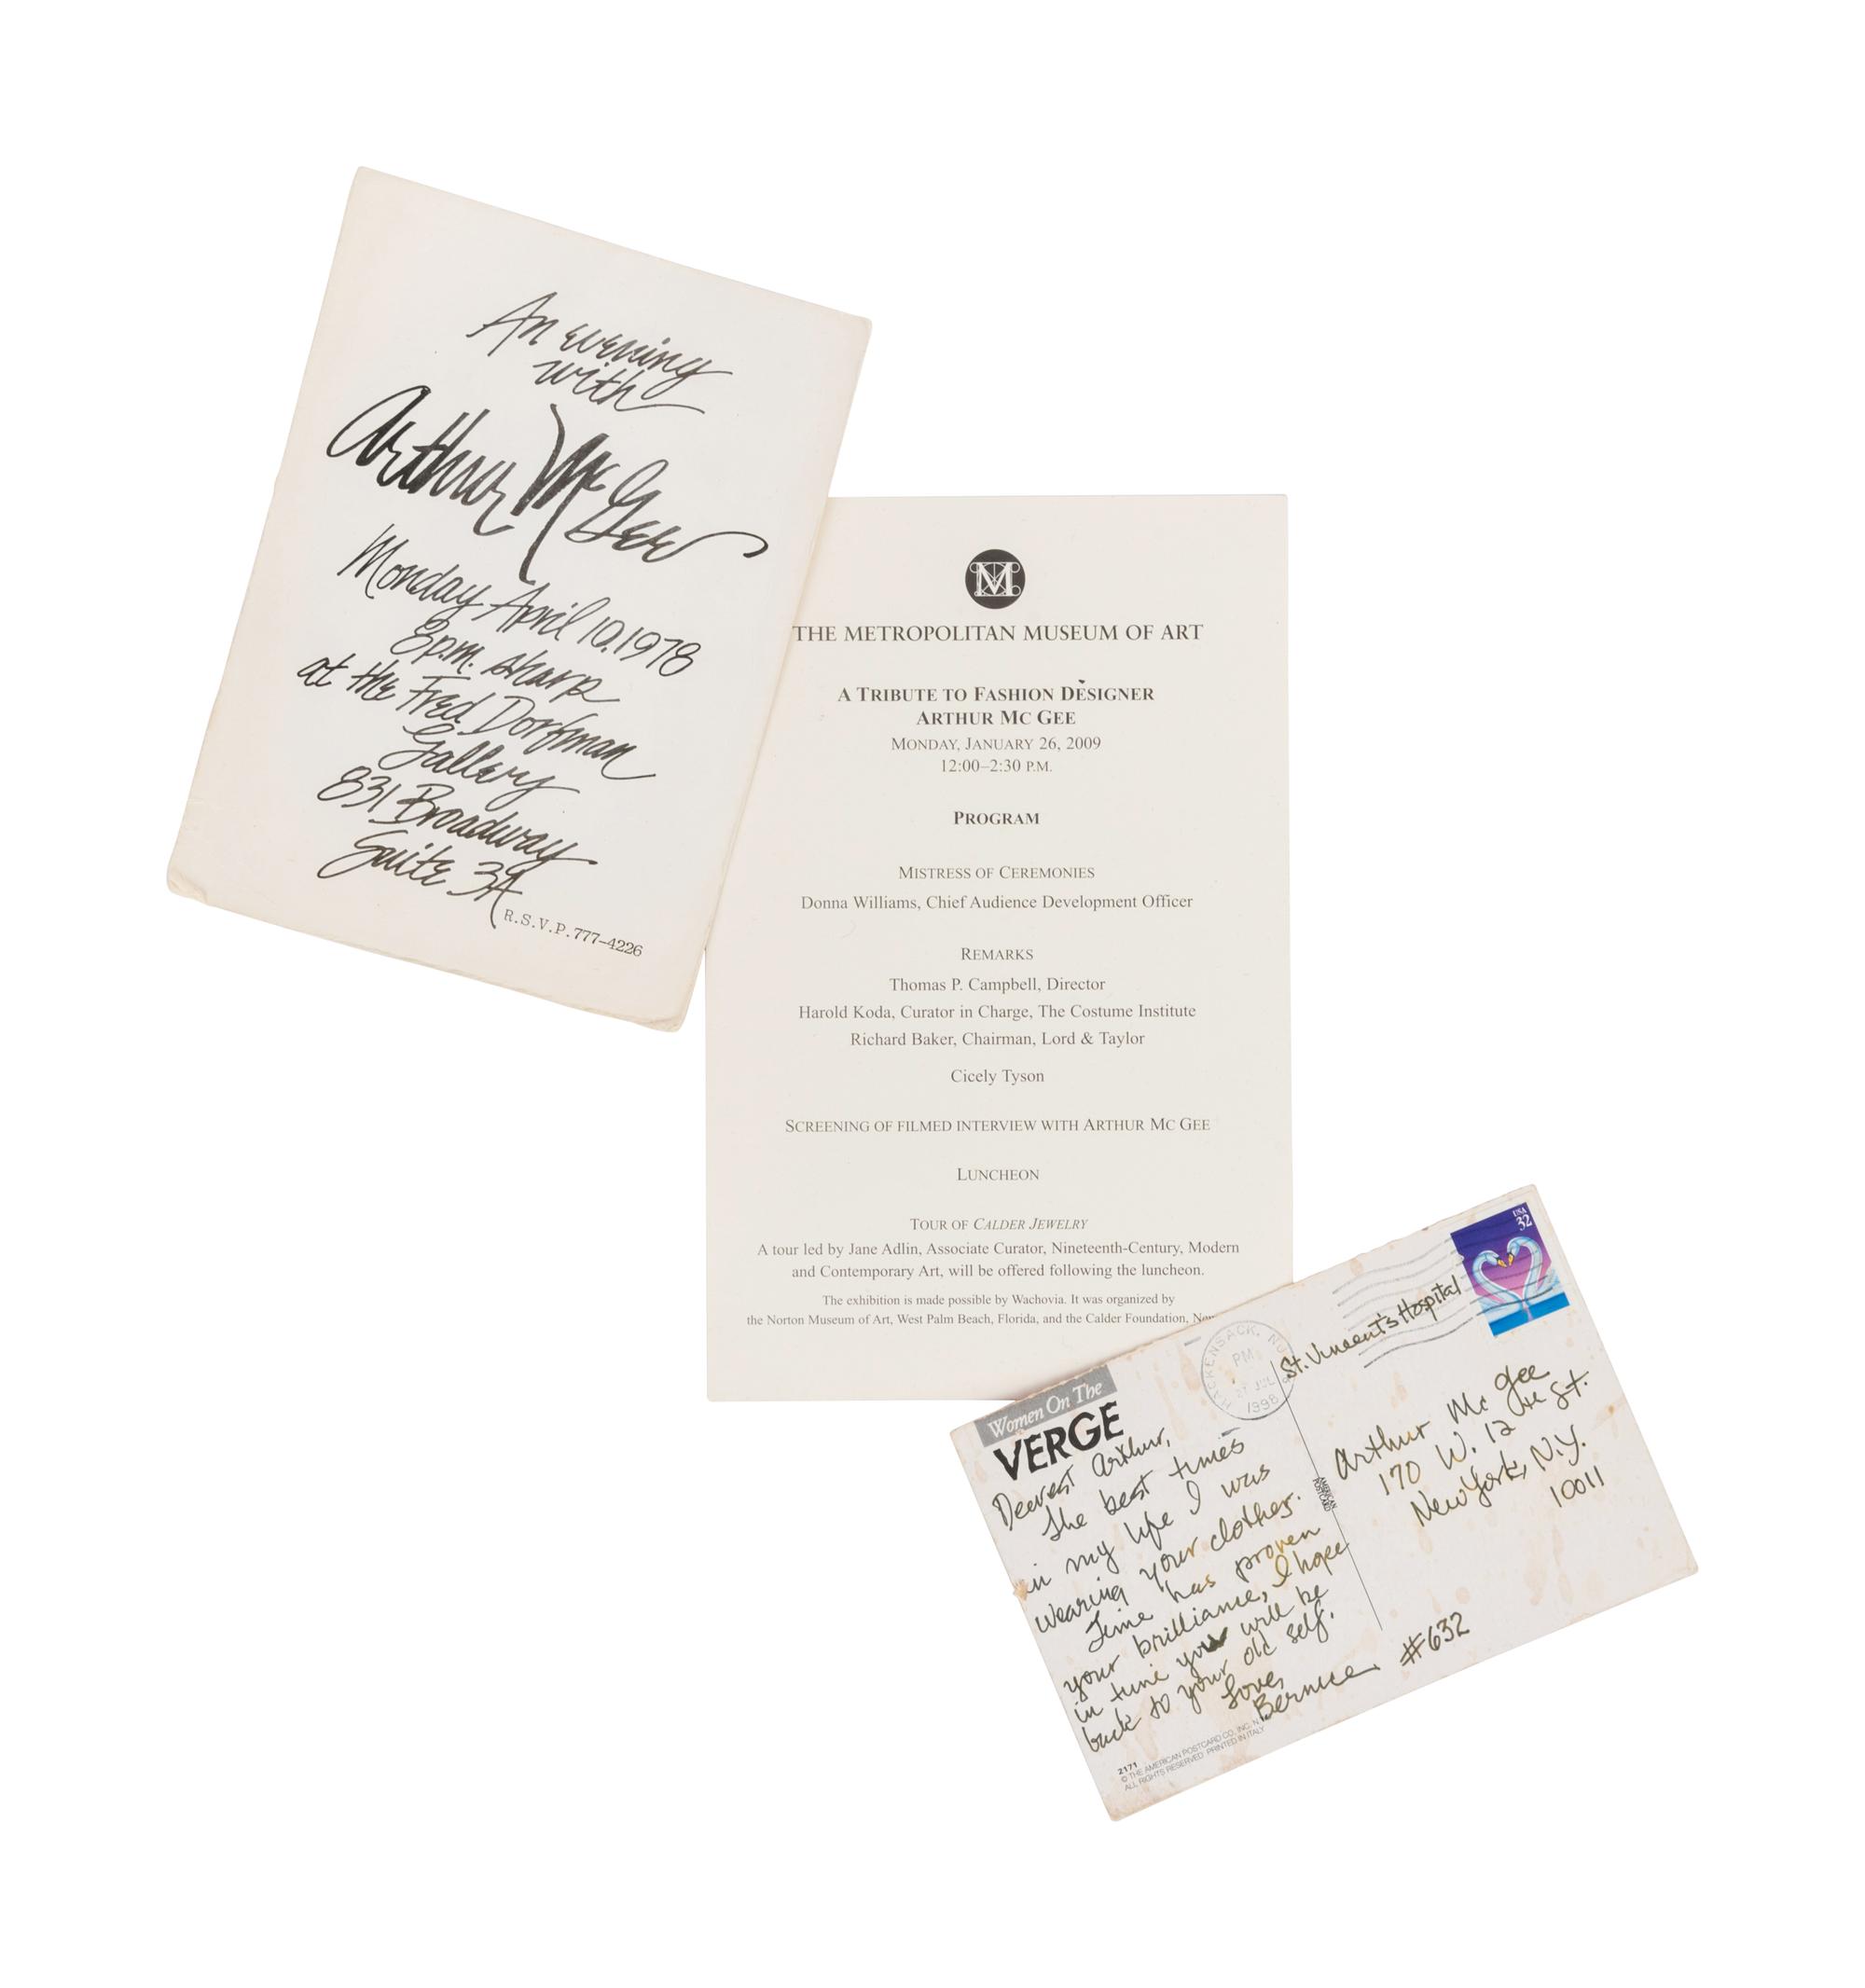 An evening
with
Arthur McGee
Monday April 10, 1978
8p.m. sharp
at the Fred Dorfman
Gallery
831 Broadway
Suite 3A
R.S.V.P. 777-4226
M
THE METROPOLITAN MUSEUM OF ART
A TRIBUTE TO FASHION DESIGNER
ARTHUR MC GEE
MONDAY, JANUARY 26, 2009
12:00–2:30 P.M.
PROGRAM
MISTRESS OF CEREMONIES
Donna Williams, Chief Audience Development Officer
REMARKS
Thomas P. Campbell, Director
Harold Koda, Curator in Charge, The Costume Institute
Richard Baker, Chairman, Lord & Taylor
Cicely Tyson
SCREENING OF FILMED INTERVIEW WITH ARTHUR MC GEE
LUNCHEON
TOUR OF CALDER JEWELRY
A tour led by Jane Adlin, Associate Curator, Nineteenth-Century, Modern
and Contemporary Art, will be offered following the luncheon.
The exhibition is made possible by Wachovia. It was organized by
the Norton Museum of Art, West Palm Beach, Florida, and the Calder Foundation, New
Women On The
VERGE
Dearest Arthur,
The best times
in my life I was
wearing your clothes.
Time has proven
your brilliance, I hope
in time you will be
back to your old self.
Love,
Bernice
2171
© THE AMERICAN POSTCARD CO. INC. N.Y.
ALL RIGHTS RESERVED PRINTED IN ITALY
AMERICAN
POSTCARD
HACKENSACK, NJ
PM
JUL
1998
USA
32
St. Vincent's Hospital
Arthur Mc Gee
170 W. 12 th St.
New York, N.Y.
10011
#632